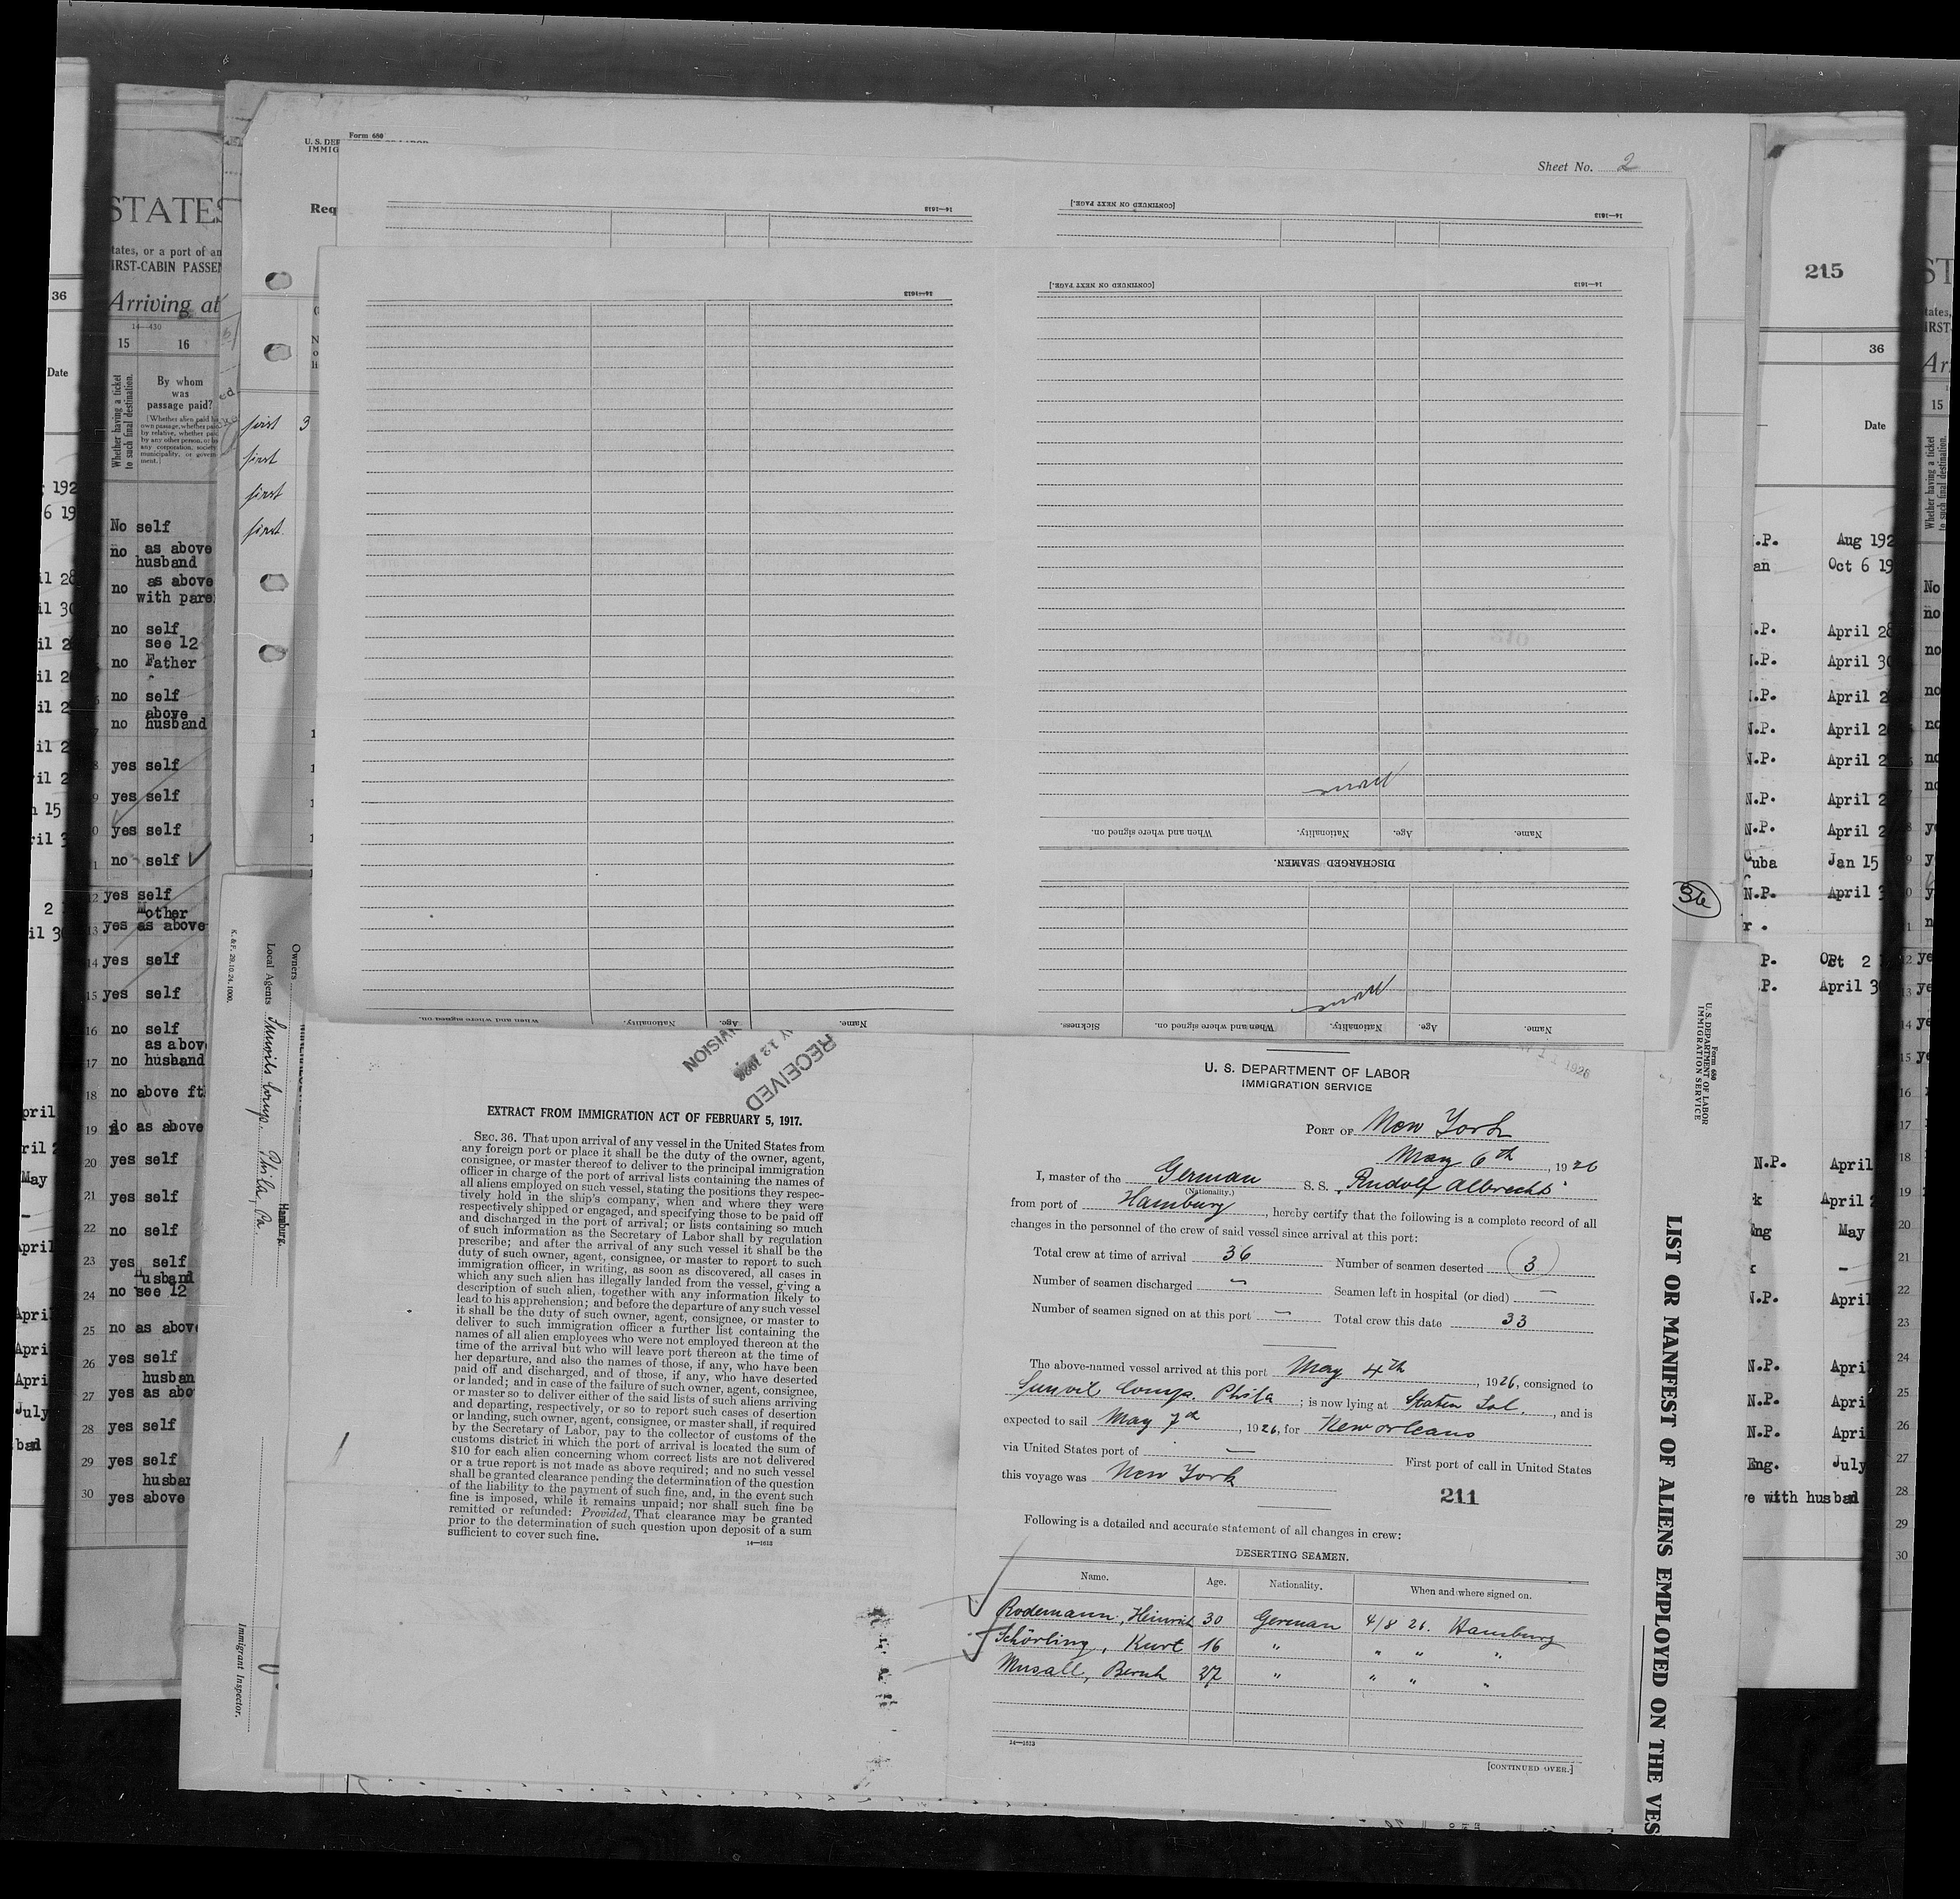 Form 680
U. S. DEP
IMMIG
Sheet No. 2
Req
14—1613
[CONTINUED ON NEXT PAGE.]
14—1613
14—1613
[CONTINUED ON NEXT PAGE.]
14—1613
When and where signed on.
Nationality.
Age.
Name.
DISCHARGED SEAMEN.
Sickness.
When and where signed on.
Nationality.
Age.
Name.
When and where signed on.
Nationality.
Age.
Name.
36
STATES
tates, or a port of an
IRST-CABIN PASSEN
Arriving at
14—430
15
16
Whether having a ticket
to such final destination.
By whom
was
passage paid?
36
Date
first 3
first
first
first
No self
no as above
husband
no as above
with pare
no self
see 12
no Father
no self
above
no husband
yes self
yes self
yes self
no self
12 yes self
Mother
13 yes as above
14 yes self
15 yes self
16 no self
as abov
17 no husband
18 no above ft
19 do as above
20 yes self
21 yes self
22 no self
23 yes self
Husband
24 no see 12
25 no as abov
26 yes self
husban
27 yes as abo
28 yes self
29 yes self
husban
30 yes above
K. & F. 29.10.24. 1000.
Local Agents Sunoils Corup. Phila, Pa.
Owners
Hamburg.
Immigrant Inspector.
RECEIVED
Y 12 1926
VISION
EXTRACT FROM IMMIGRATION ACT OF FEBRUARY 5, 1917.
SEC. 36. That upon arrival of any vessel in the United States from
any foreign port or place it shall be the duty of the owner, agent,
consignee, or master thereof to deliver to the principal immigration
officer in charge of the port of arrival lists containing the names of
all aliens employed on such vessel, stating the positions they respec-
tively hold in the ship's company, when and where they were
respectively shipped or engaged, and specifying those to be paid off
and discharged in the port of arrival; or lists containing so much
of such information as the Secretary of Labor shall by regulation
prescribe; and after the arrival of any such vessel it shall be the
duty of such owner, agent, consignee, or master to report to such
immigration officer, in writing, as soon as discovered, all cases in
which any such alien has illegally landed from the vessel, giving a
description of such alien, together with any information likely to
lead to his apprehension; and before the departure of any such vessel
it shall be the duty of such owner, agent, consignee, or master to
deliver to such immigration officer a further list containing the
names of all alien employees who were not employed thereon at the
time of the arrival but who will leave port thereon at the time of
her departure, and also the names of those, if any, who have been
paid off and discharged, and of those, if any, who have deserted
or landed; and in case of the failure of such owner, agent, consignee,
or master so to deliver either of the said lists of such aliens arriving
and departing, respectively, or so to report such cases of desertion
or landing, such owner, agent, consignee, or master shall, if required
by the Secretary of Labor, pay to the collector of customs of the
customs district in which the port of arrival is located the sum of
$10 for each alien concerning whom correct lists are not delivered
or a true report is not made as above required; and no such vessel
shall be granted clearance pending the determination of the question
of the liability to the payment of such fine, and, in the event such
fine is imposed, while it remains unpaid; nor shall such fine be
remitted or refunded: Provided, That clearance may be granted
prior to the determination of such question upon deposit of a sum
sufficient to cover such fine.
14—1613
U. S. DEPARTMENT OF LABOR
IMMIGRATION SERVICE
PORT OF New York
May 6th, 1926
I, master of the German S. S. "Rudolf Albrecht"
(Nationality.)
from port of Hamburg, hereby certify that the following is a complete record of all
changes in the personnel of the crew of said vessel since arrival at this port:
Total crew at time of arrival 36 Number of seamen deserted (3)
Number of seamen discharged — Seamen left in hospital (or died) —
Number of seamen signed on at this port — Total crew this date 33
The above-named vessel arrived at this port May 4th, 1926, consigned to
Sunoil Comp. Phila; is now lying at Staten Isl., and is
expected to sail May 7th, 1926, for New orleans
via United States port of — First port of call in United States
this voyage was New York
211
Following is a detailed and accurate statement of all changes in crew:
DESERTING SEAMEN.
Name. Age. Nationality. When and where signed on.
Rodemann, Heinrich 30 German 4/8 26. Hamburg
Schörling, Kurt 16 " " " "
Musall, Bernh 27 " " " "
14—1613
[CONTINUED OVER.]
Form 680
U. S. DEPARTMENT OF LABOR
IMMIGRATION SERVICE
LIST OR MANIFEST OF ALIENS EMPLOYED ON THE VES
215
36
Date
N.P. Aug 192
an Oct 6 19
N.P. April 28
N.P. April 30
N.P. April 2
N.P. April 2
N.P. April 2
N.P. April 2
N.P. April 2
Cuba Jan 15
N.P. April 3
P. Oct 2
P. April 3
N.P. April
k April 2
Eng May
N.P. April
N.P. April
N.P. Apri
N.P. Apri
Eng. July
e with husbad